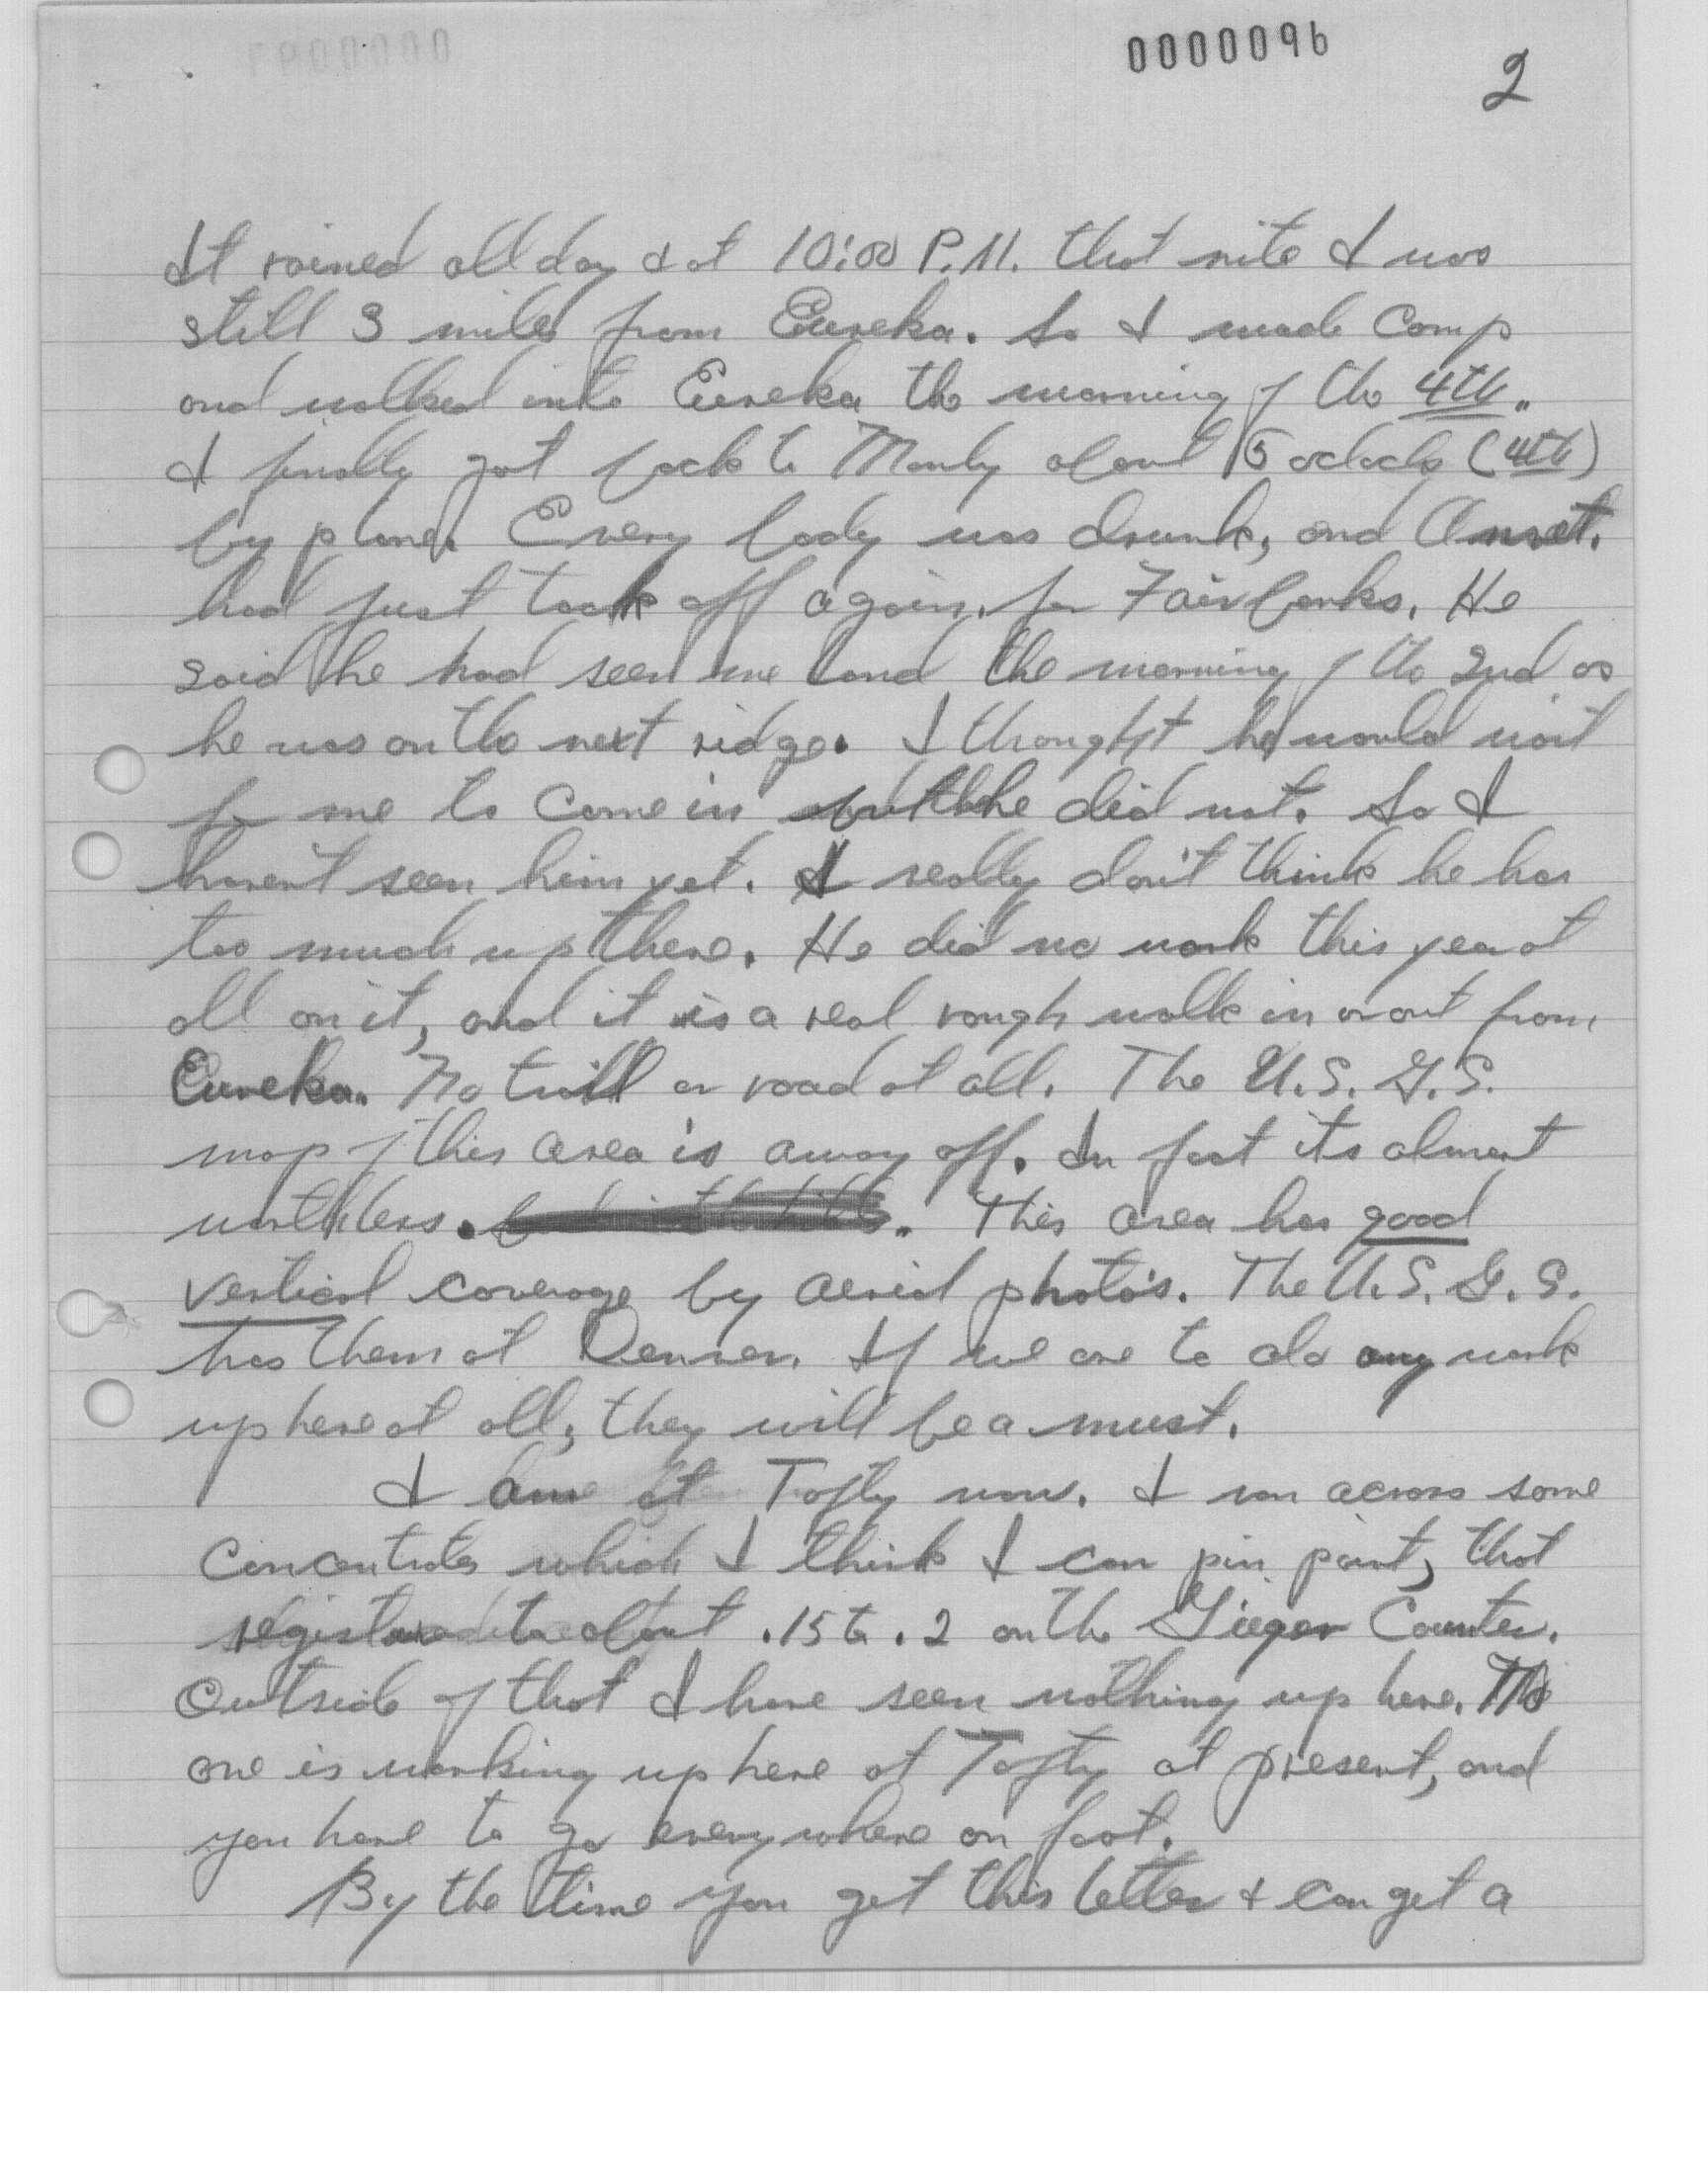 0000096
2
It rained all day & at 10:00 P.M. that nite I was
still 3 miles from Eureka. So I made Camp
and walked into Eureka the morning of the 4th.
I finally got back to Manly about 5 oclock (4th)
by plane. Every body was drunk, and
had just took off again for Fairbanks. He
said he had seen me land the morning of the 2nd as
he was on the next ridge. I thought he would wait
for me to Come in but he did not. So I
havent seen him yet. I really don't think he has
too much up there. He did no work this year at
all on it, and it is a real rough walk in or out from
Eureka. No trill or road at all. The U.S. G.S.
map of this area is away off. In fact its almost
worthless. This area has good
vertical coverage by aerial photo's. The U.S. G.S.
has them at Denver. If we are to do any work
up here at all, they will be a must.
I am at Tofty now. I ran across some
Concentrates which I think I can pin point, that
registered to about .15 to .2 on the Gieger Counter.
Outside of that I have seen nothing up here. No
one is working up here at Tofty at present, and
you have to go everywhere on foot.
By the time you get this letter & can get a